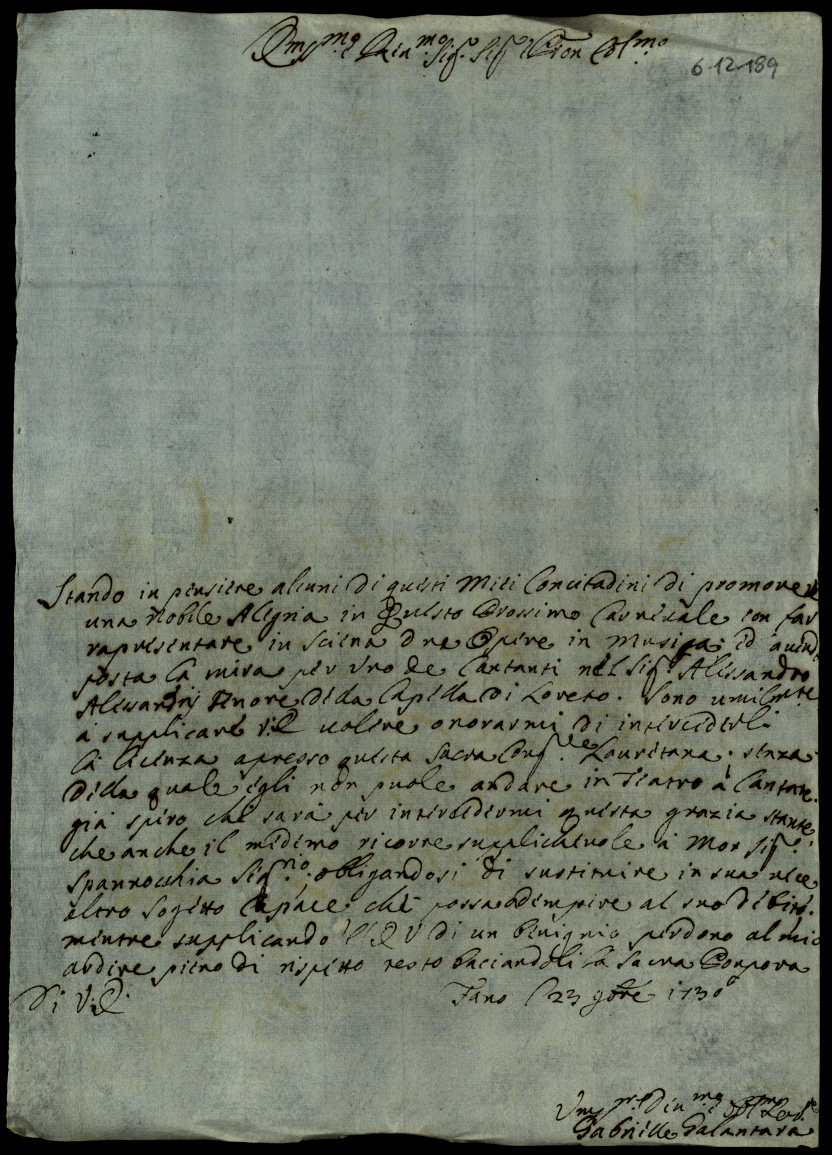 Em.mo e Rev.mo Sig.r Sig.r e Pron Col.mo
6-12-189
Stando in pensiere alcuni di questi Miei Concitadini di promovere
una Nobile Alegria in Questo Prossimo Carnevale con far
rapresentare in sciena due Opere in Musica; ed avendo
posta la mira per uno de Cantanti nel Sig.r Alessandro
Alessandrij Tenore della Capella di Loreto. Sono umilm.te
a supplicare V.E. volere onorarmi di intercederli
la licenza apresso questa Sacra Cong.ne Lauretana; senza
della quale egli non puole andare in Teatro a Cantare.
già spero che sarà per intercedermi questa grazia stante,
che anche il medemo ricorre supplichevole a Mon Sig.r
Spannocchia obligandosi di sustituire in sua vece
altro Sogetto Capace che possa adempire al suo debito.
mentre supplicando V.E. di un benignio perdono al mio
ardire pieno di rispetto resto baciandoli la Sacra Porpora
Di V.E.
Fano li 23 9bre 1730
Um.mo Dev.mo Obl.mo Ser.re
Gabrielle Galantara